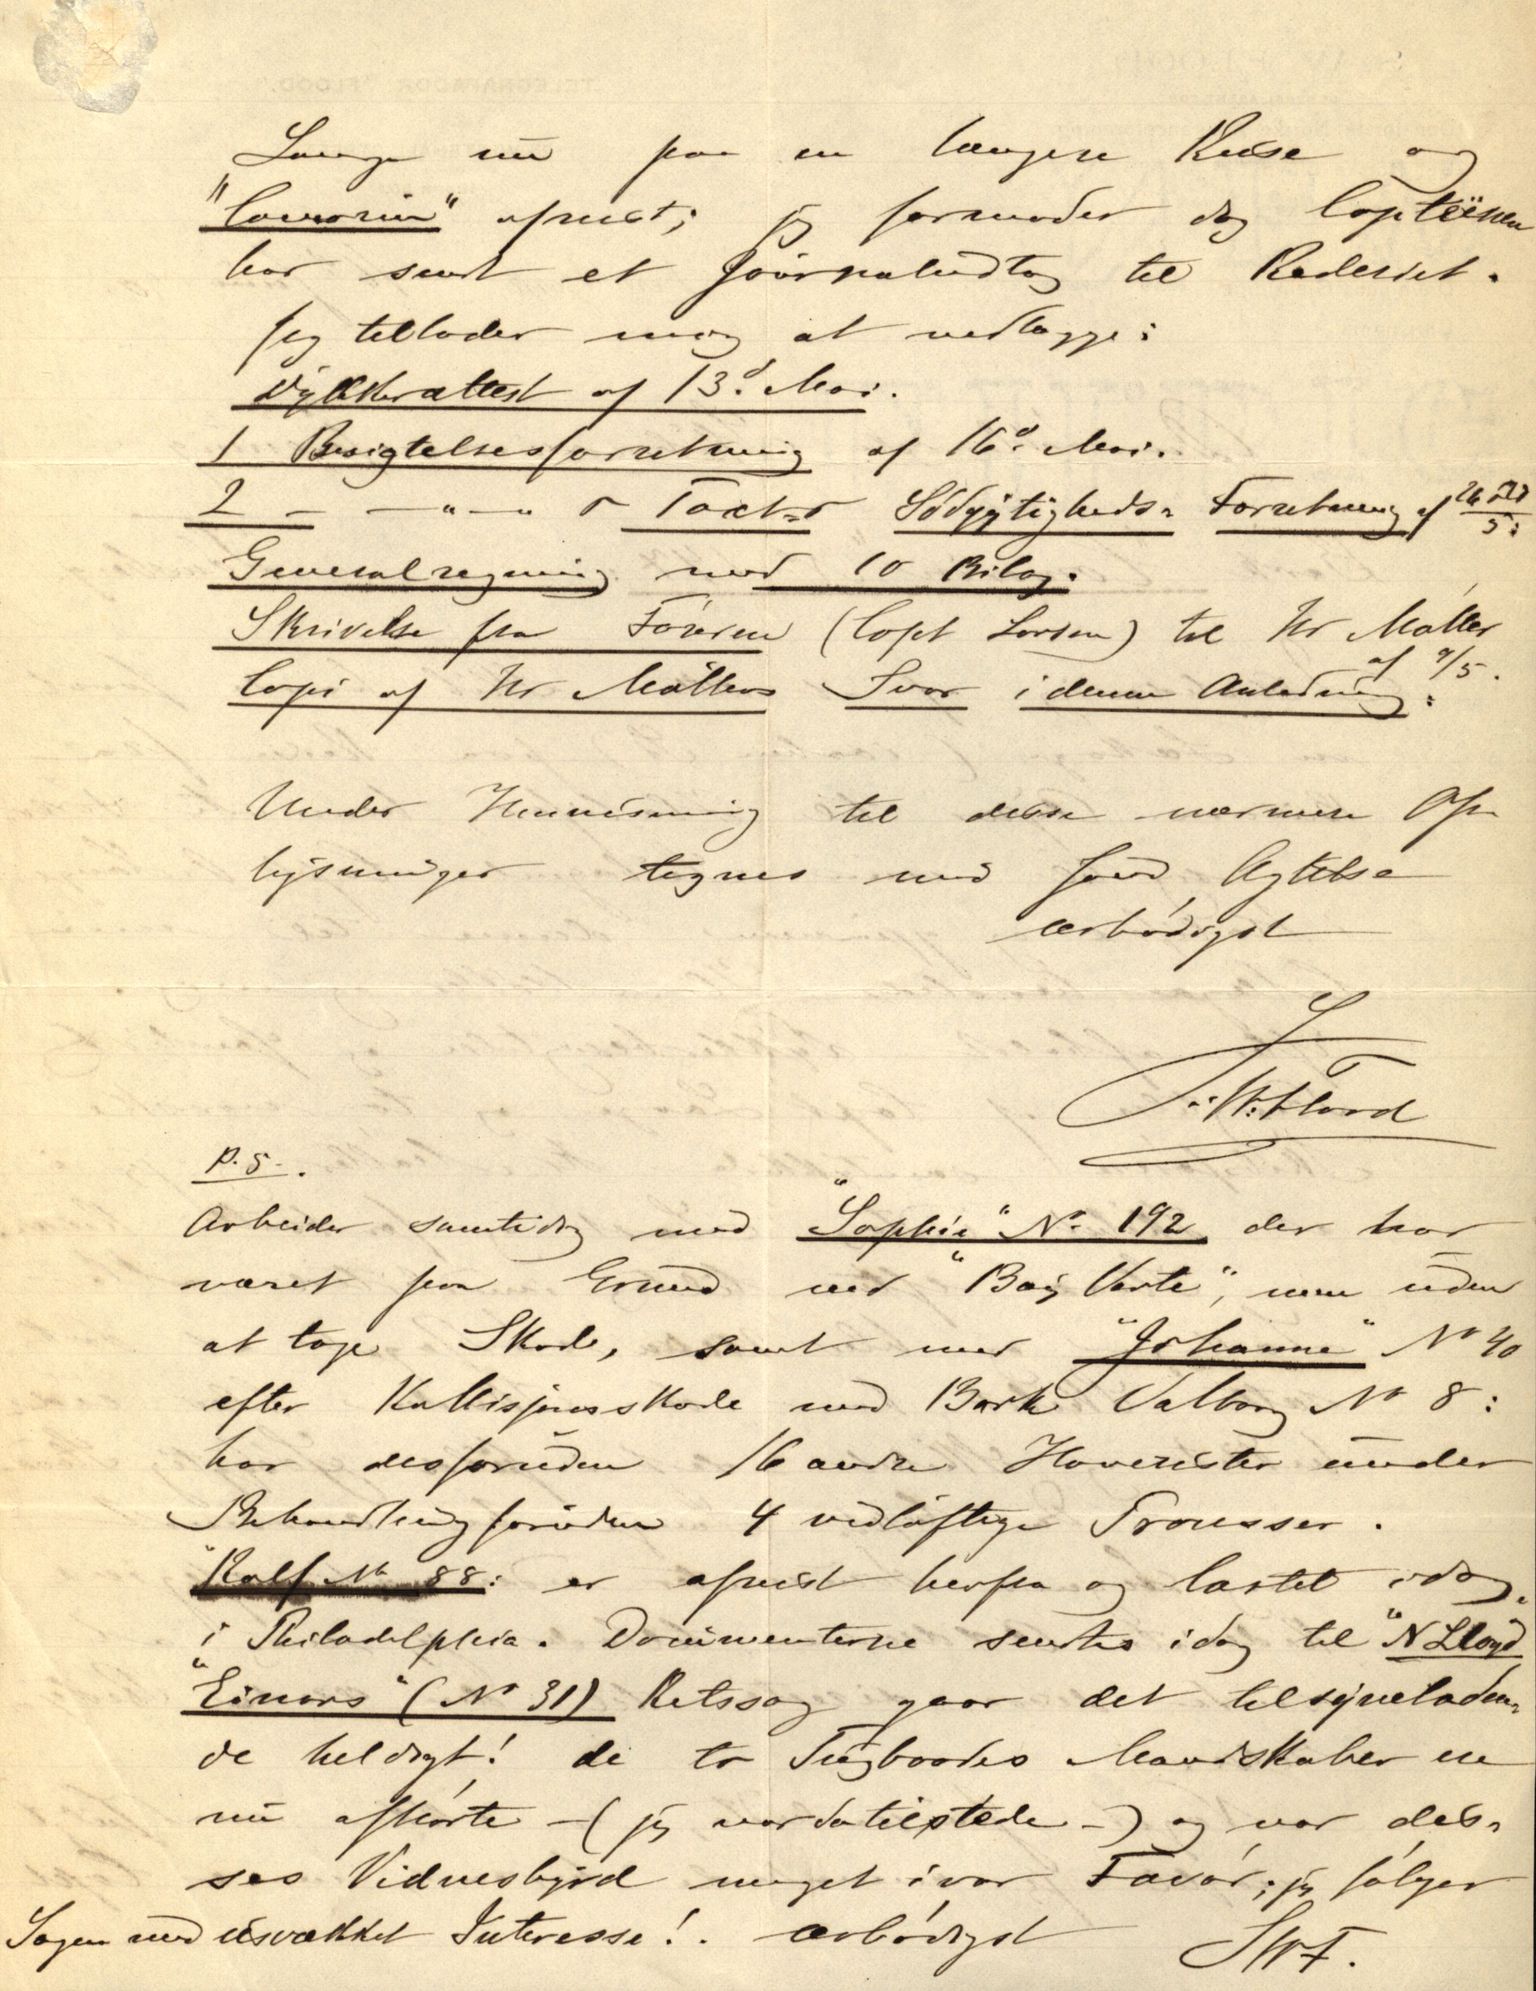 Lange nu paa en længere Reise og
"Comorin" afreist; jeg formoder dog Capteinen
har sendt et Journaludtog til Rederiet.
Jeg tillader mig at vedlægge:
Dykkerattest af 13d Mai.
1 Besigtelsesforretning af 16d Mai.
2 — — " — " o Taxt= o Södygtigheds= Forretning af 26
5:
Generalregning med 10 Bilag.
Skrivelse fra Föreren (Capt Larsen) til Hr Möller
af 9/5.
Copi af Hr Möllers Svar i denne Anledning:
Under Henvisning til disse nærmere Op=
lysninger tegnes med sand Agtelse
ærbödigst
S.W. Flood
P.S.
Arbeider samtidig med "Sophie" No 192 der har
været paa Grund ved "Bay Verte", men uden
at tage Skade, samt med "Johanne" No 40
efter Kollisjonsskade med Bark Valborg No 8:
har desforuden 16 andre Havarister under
Behandling foruden 4 vidlöftige Prosesser.
"Rolf No 88: er afreist herfra og lastet idag
i Philadelphia. Documenterne sendtes idag til "N Lloyd
"Einars" (No 31) Retssag gaar det tilsyneladen=
de heldigt! de to Tugboades Mandskaber er
nu afhörte — (jeg var da tilstede —) og var dis=
ses Vidnesbyrd meget i vor Favör; jeg fölger
Sagen med usvækket Interesse!. ærbödigst SWF.